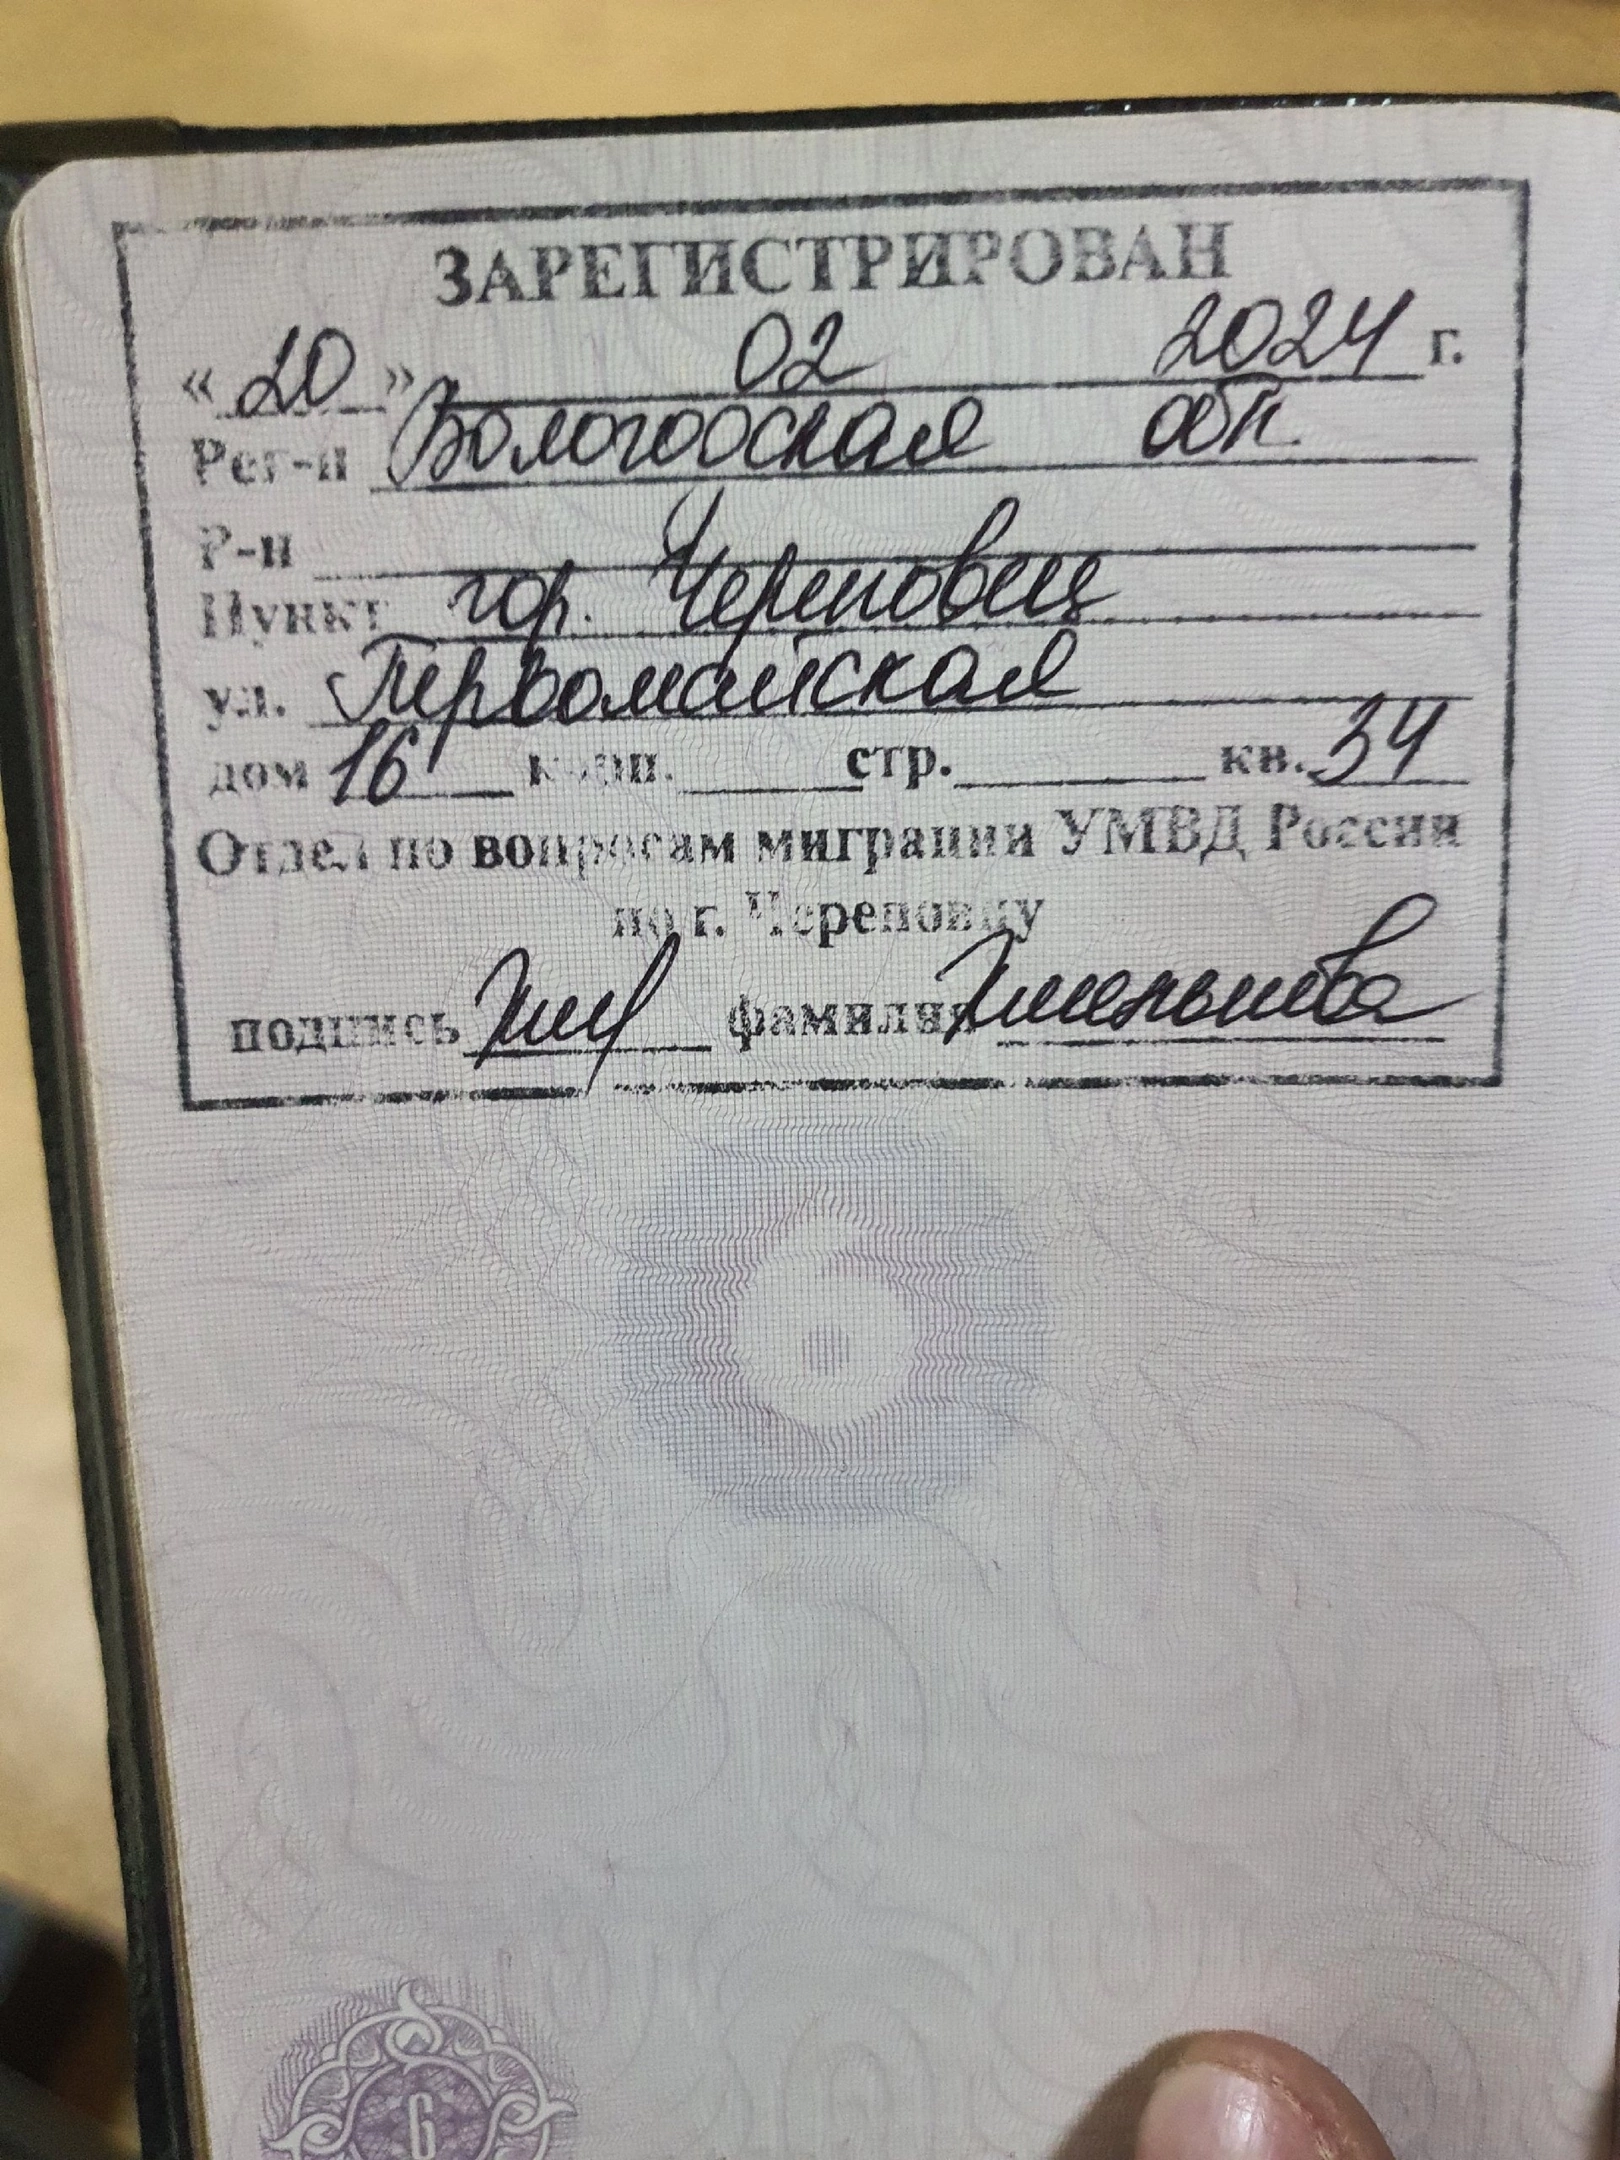 ЗАРЕГИСТРИРОВАН
« 20 » 02 2024 г.
Рег-н Вологодская обл.
Р-н
Пункт гор. Череповец
ул. Первомайская
дом 16 корп. стр. кв. 34
Отдел по вопросам миграции УМВД России
по г. Череповцу
подпись фамилия
6